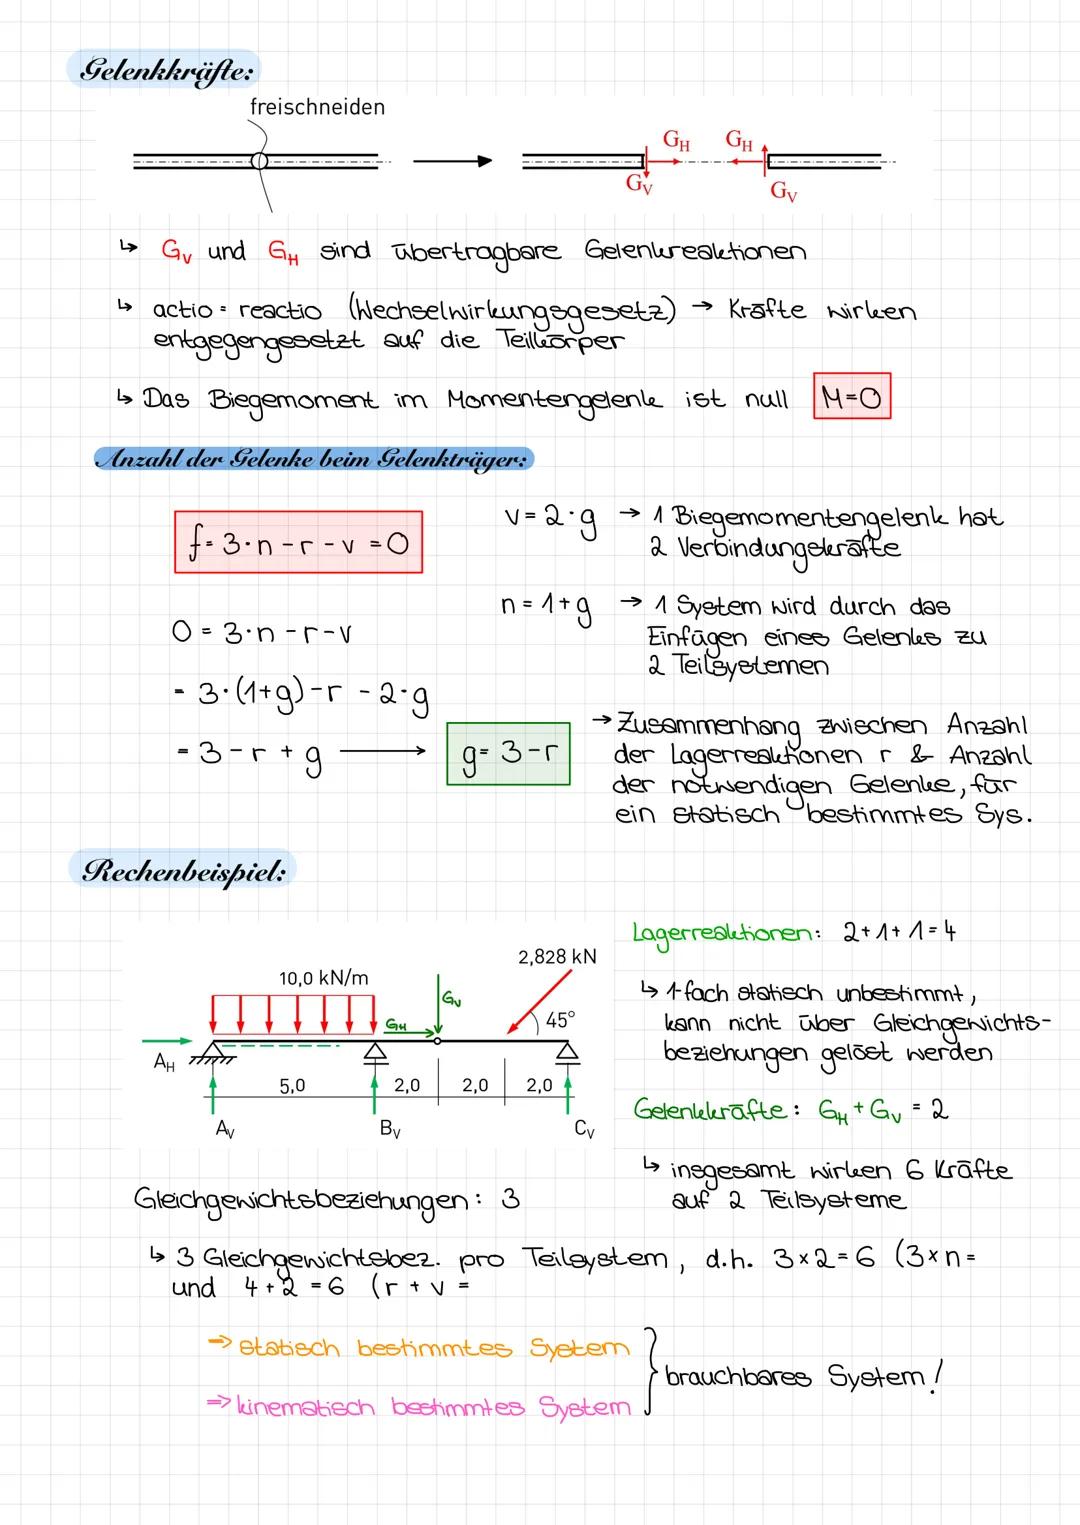 Gelenkkräfte:
freischneiden
G_H G_H
G_V G_V
↳ G_V und G_H sind übertragbare Gelenkreaktionen
↳ actio = reactio (Wechselwirkungsgesetz) → Kräfte wirken
entgegengesetzt auf die Teilkörper
↳ Das Biegemoment im Momentengelenk ist null M=0
Anzahl der Gelenke beim Gelenkträger:
f = 3·n - r - v = 0
v = 2·g → 1 Biegemomentengelenk hat
2 Verbindungskräfte
n = 1+g → 1 System wird durch das
Einfügen eines Gelenkes zu
2 Teilsystemen
0 = 3·n - r - v
= 3·(1+g) - r - 2·g
= 3 - r + g → g = 3 - r
→ Zusammenhang zwischen Anzahl
der Lagerreaktionen r & Anzahl
der notwendigen Gelenke, für
ein statisch bestimmtes Sys.
Rechenbeispiel:
2,828 kN
10,0 kN/m
G_V
G_H
45°
A_H
5,0 2,0 2,0 2,0
A_V B_V C_V
Lagerreaktionen: 2+1+1=4
↳ 1-fach statisch unbestimmt,
kann nicht über Gleichgewichts-
beziehungen gelöst werden
Gelenkkräfte: G_H + G_V = 2
↳ insgesamt wirken 6 Kräfte
auf 2 Teilsysteme
Gleichgewichtsbeziehungen: 3
↳ 3 Gleichgewichtsbez. pro Teilsystem, d.h. 3×2=6 (3×n=
und 4+2=6 (r + v =
⇒ statisch bestimmtes System
⇒ kinematisch bestimmtes System
brauchbares System!